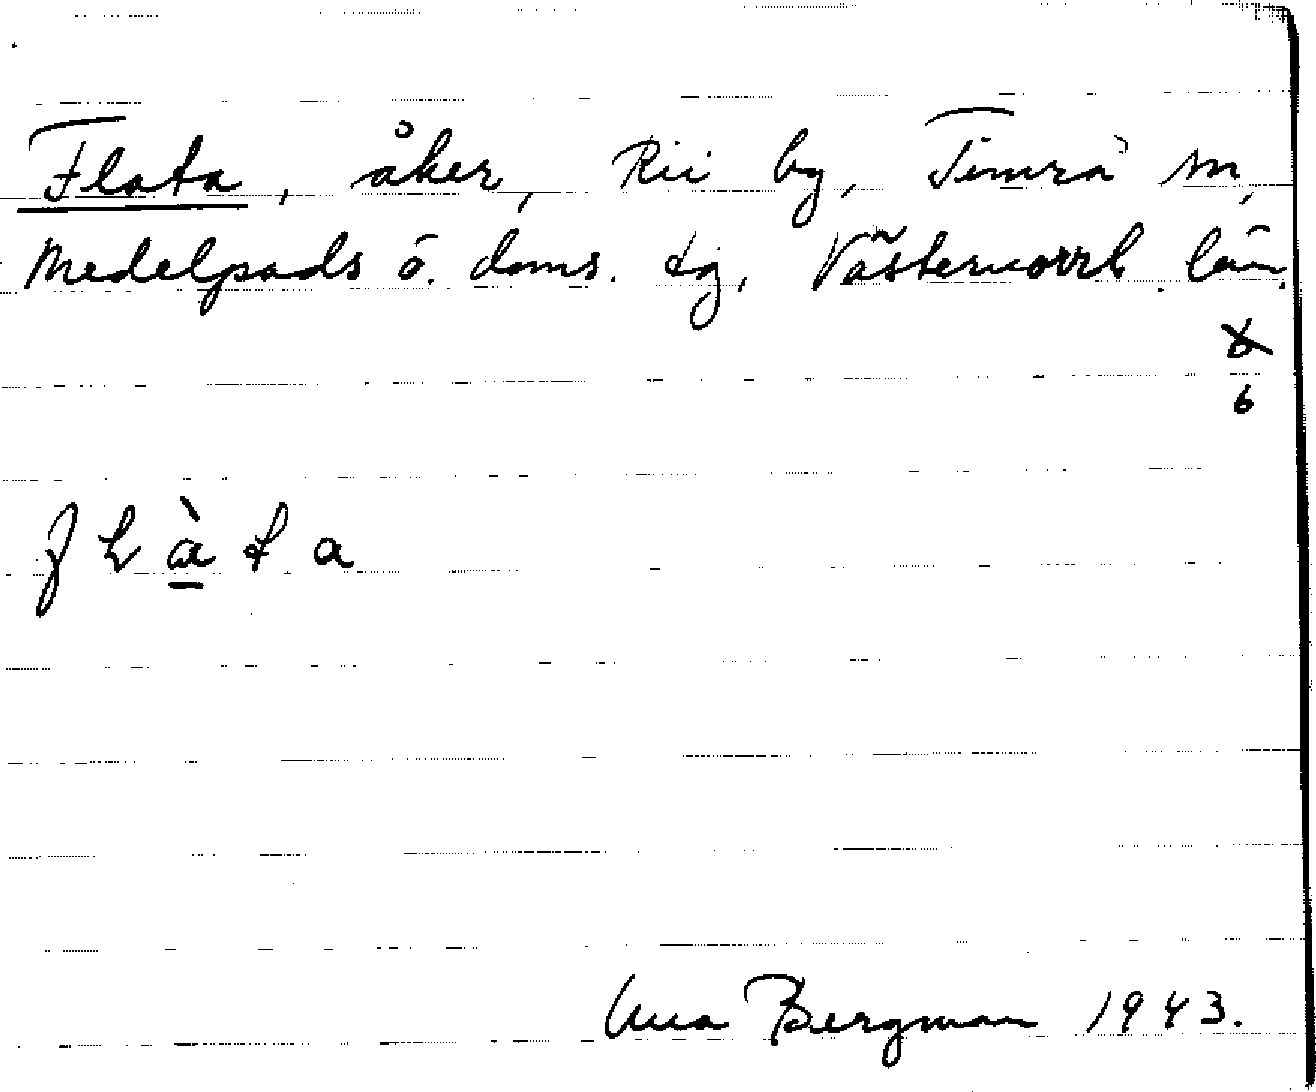 Flata, åker, Rii by, Timrå sn,
Medelpads ö. doms. tg, Västernorrl. län.
6
6
Una Bergman 1943.